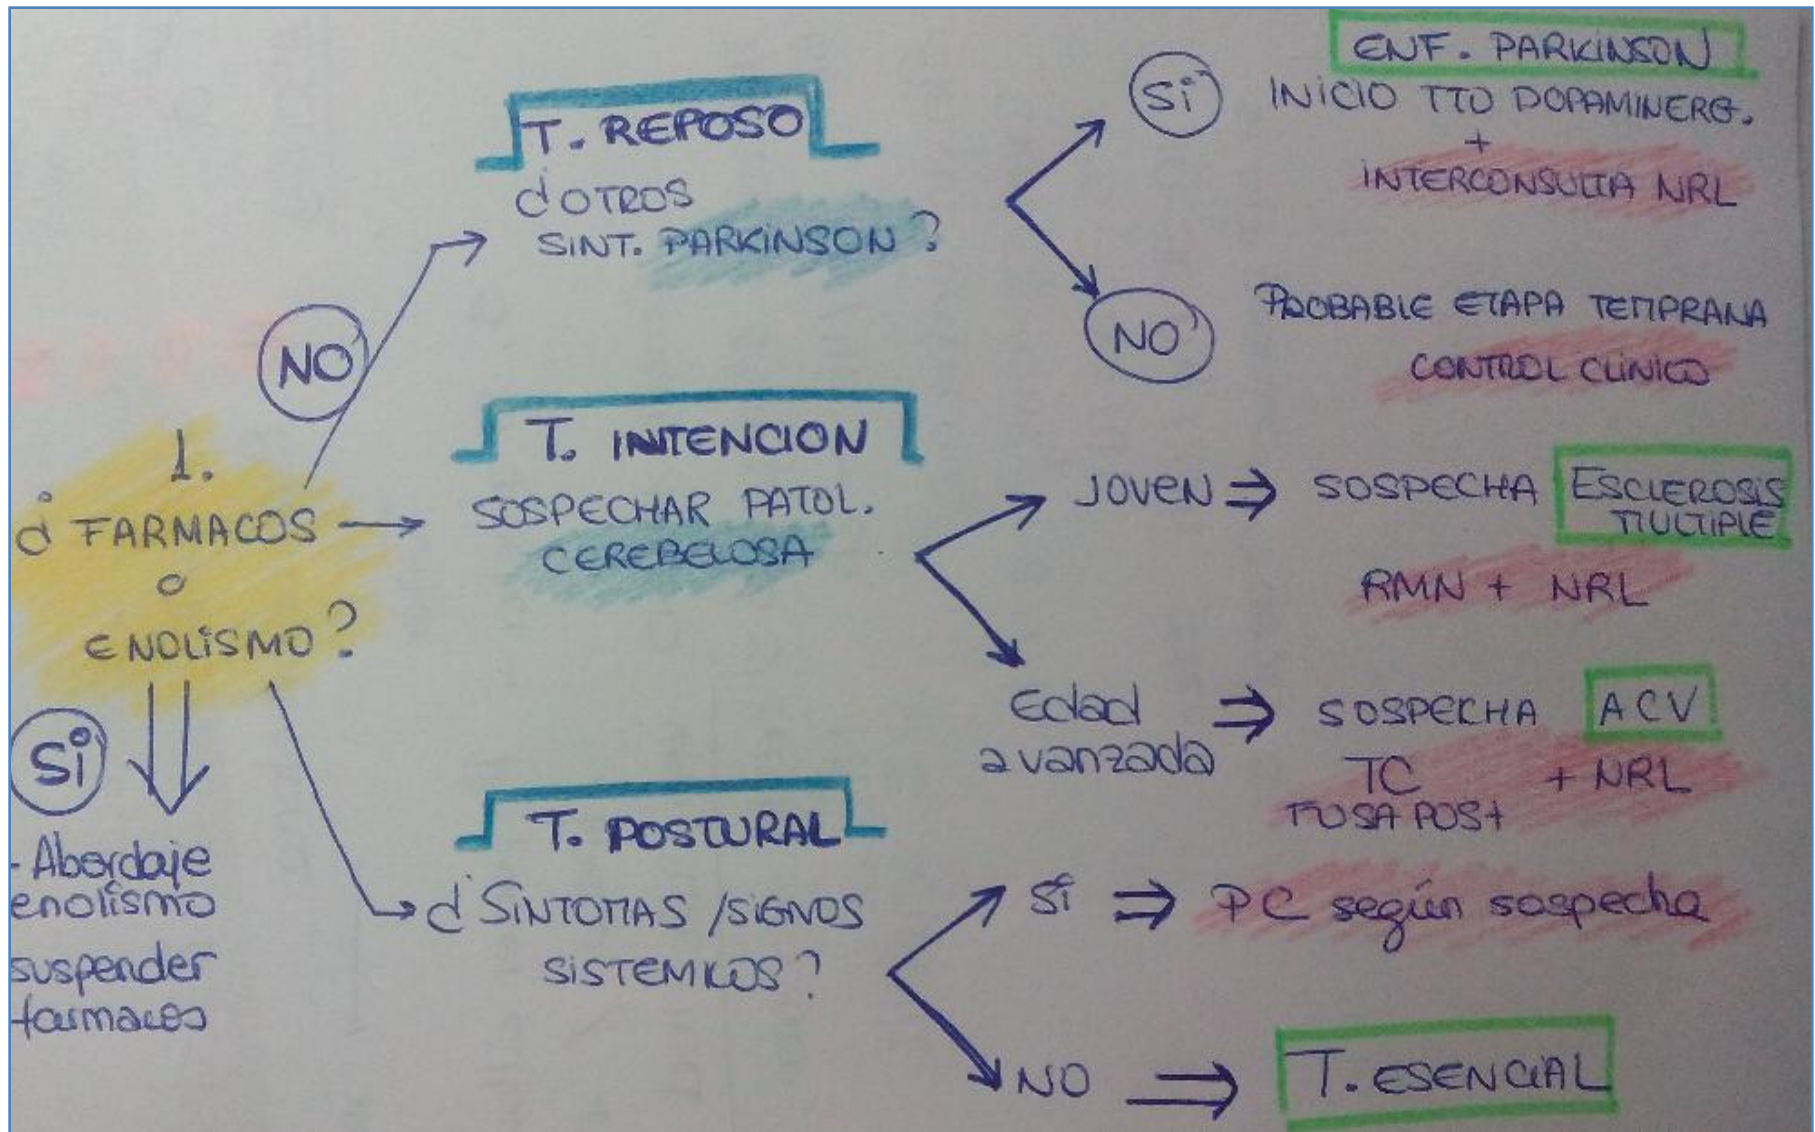 1.
¿ FARMACOS
o
ENOLISMO?
SI
- Abordaje
enolismo
suspender
farmacos
NO
T. REPOSO
¿ OTROS
SINT. PARKINSON?
SI
ENF. PARKINSON
INICIO TTO DOPAMINERG.
+
INTERCONSULTA NRL
NO
PROBABLE ETAPA TEMPRANA
CONTROL CLINICO
T. INTENCION
SOSPECHAR PATOL.
CEREBELOSA
JOVEN ⇒ SOSPECHA ESCLEROSIS
MULTIPLE
RMN + NRL
Edad
avanzada ⇒ SOSPECHA ACV
TC + NRL
FOSA POST
T. POSTURAL
¿ SINTOMAS / SIGNOS
SISTEMICOS?
SI ⇒ PC según sospecha
NO ⇒ T. ESENCIAL